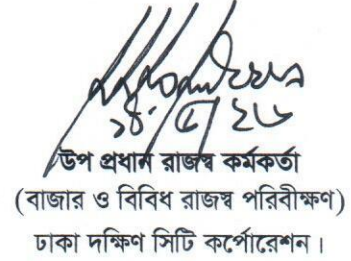 উপ প্রধান রাজস্ব কর্মকর্তা
(বাজার ও বিবিধ রাজস্ব পরিবীক্ষণ)
ঢাকা দক্ষিণ সিটি কর্পোরেশন।